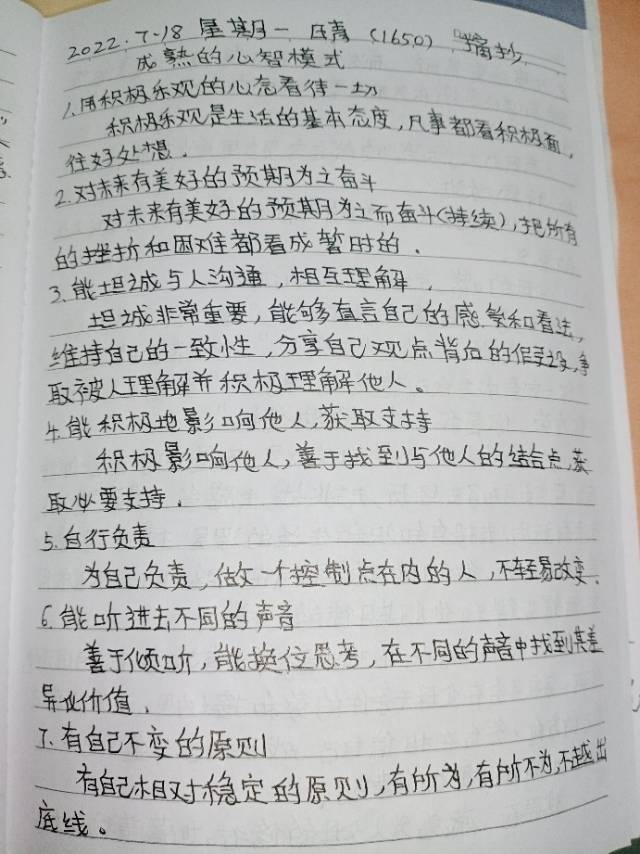 2022.7.18 星期一 晴 (1650) 摘抄
成熟的心智模式
1.用积极乐观的心态看待一切
积极乐观是生活的基本态度，凡事都看积极面，
往好处想。
2.对未来有美好的预期为之奋斗
对未来有美好的预期为之而奋斗(持续)，把所有
的挫折和困难都看成暂时的。
3.能坦诚与人沟通，相互理解。
坦诚非常重要，能够直言自己的感觉和看法，
维持自己的一致性，分享自己观点背后的假设，争
取被人理解并积极理解他人。
4.能积极地影响他人，获取支持
积极影响他人，善于找到与他人的结合点，获
取必要支持。
5.自行负责
为自己负责，做一个控制点在内的人，不轻易改变。
6.能听进去不同的声音
善于倾听，能换位思考，在不同的声音中找到其差
异化价值。
7.有自己不变的原则
有自己相对稳定的原则，有所为，有所不为，不越出
底线。